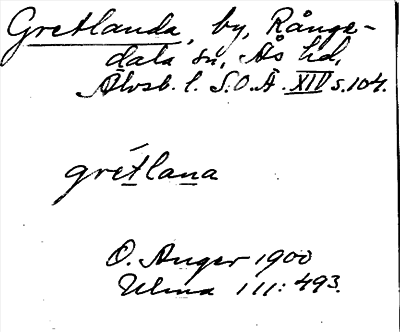 Gretlanda, by, Långe-
dala sn, Ås hd,
Älvsb. l. S.O.Ä. XIV s. 104.
grétlana
O. Anger 1900
Ulma 111: 493.